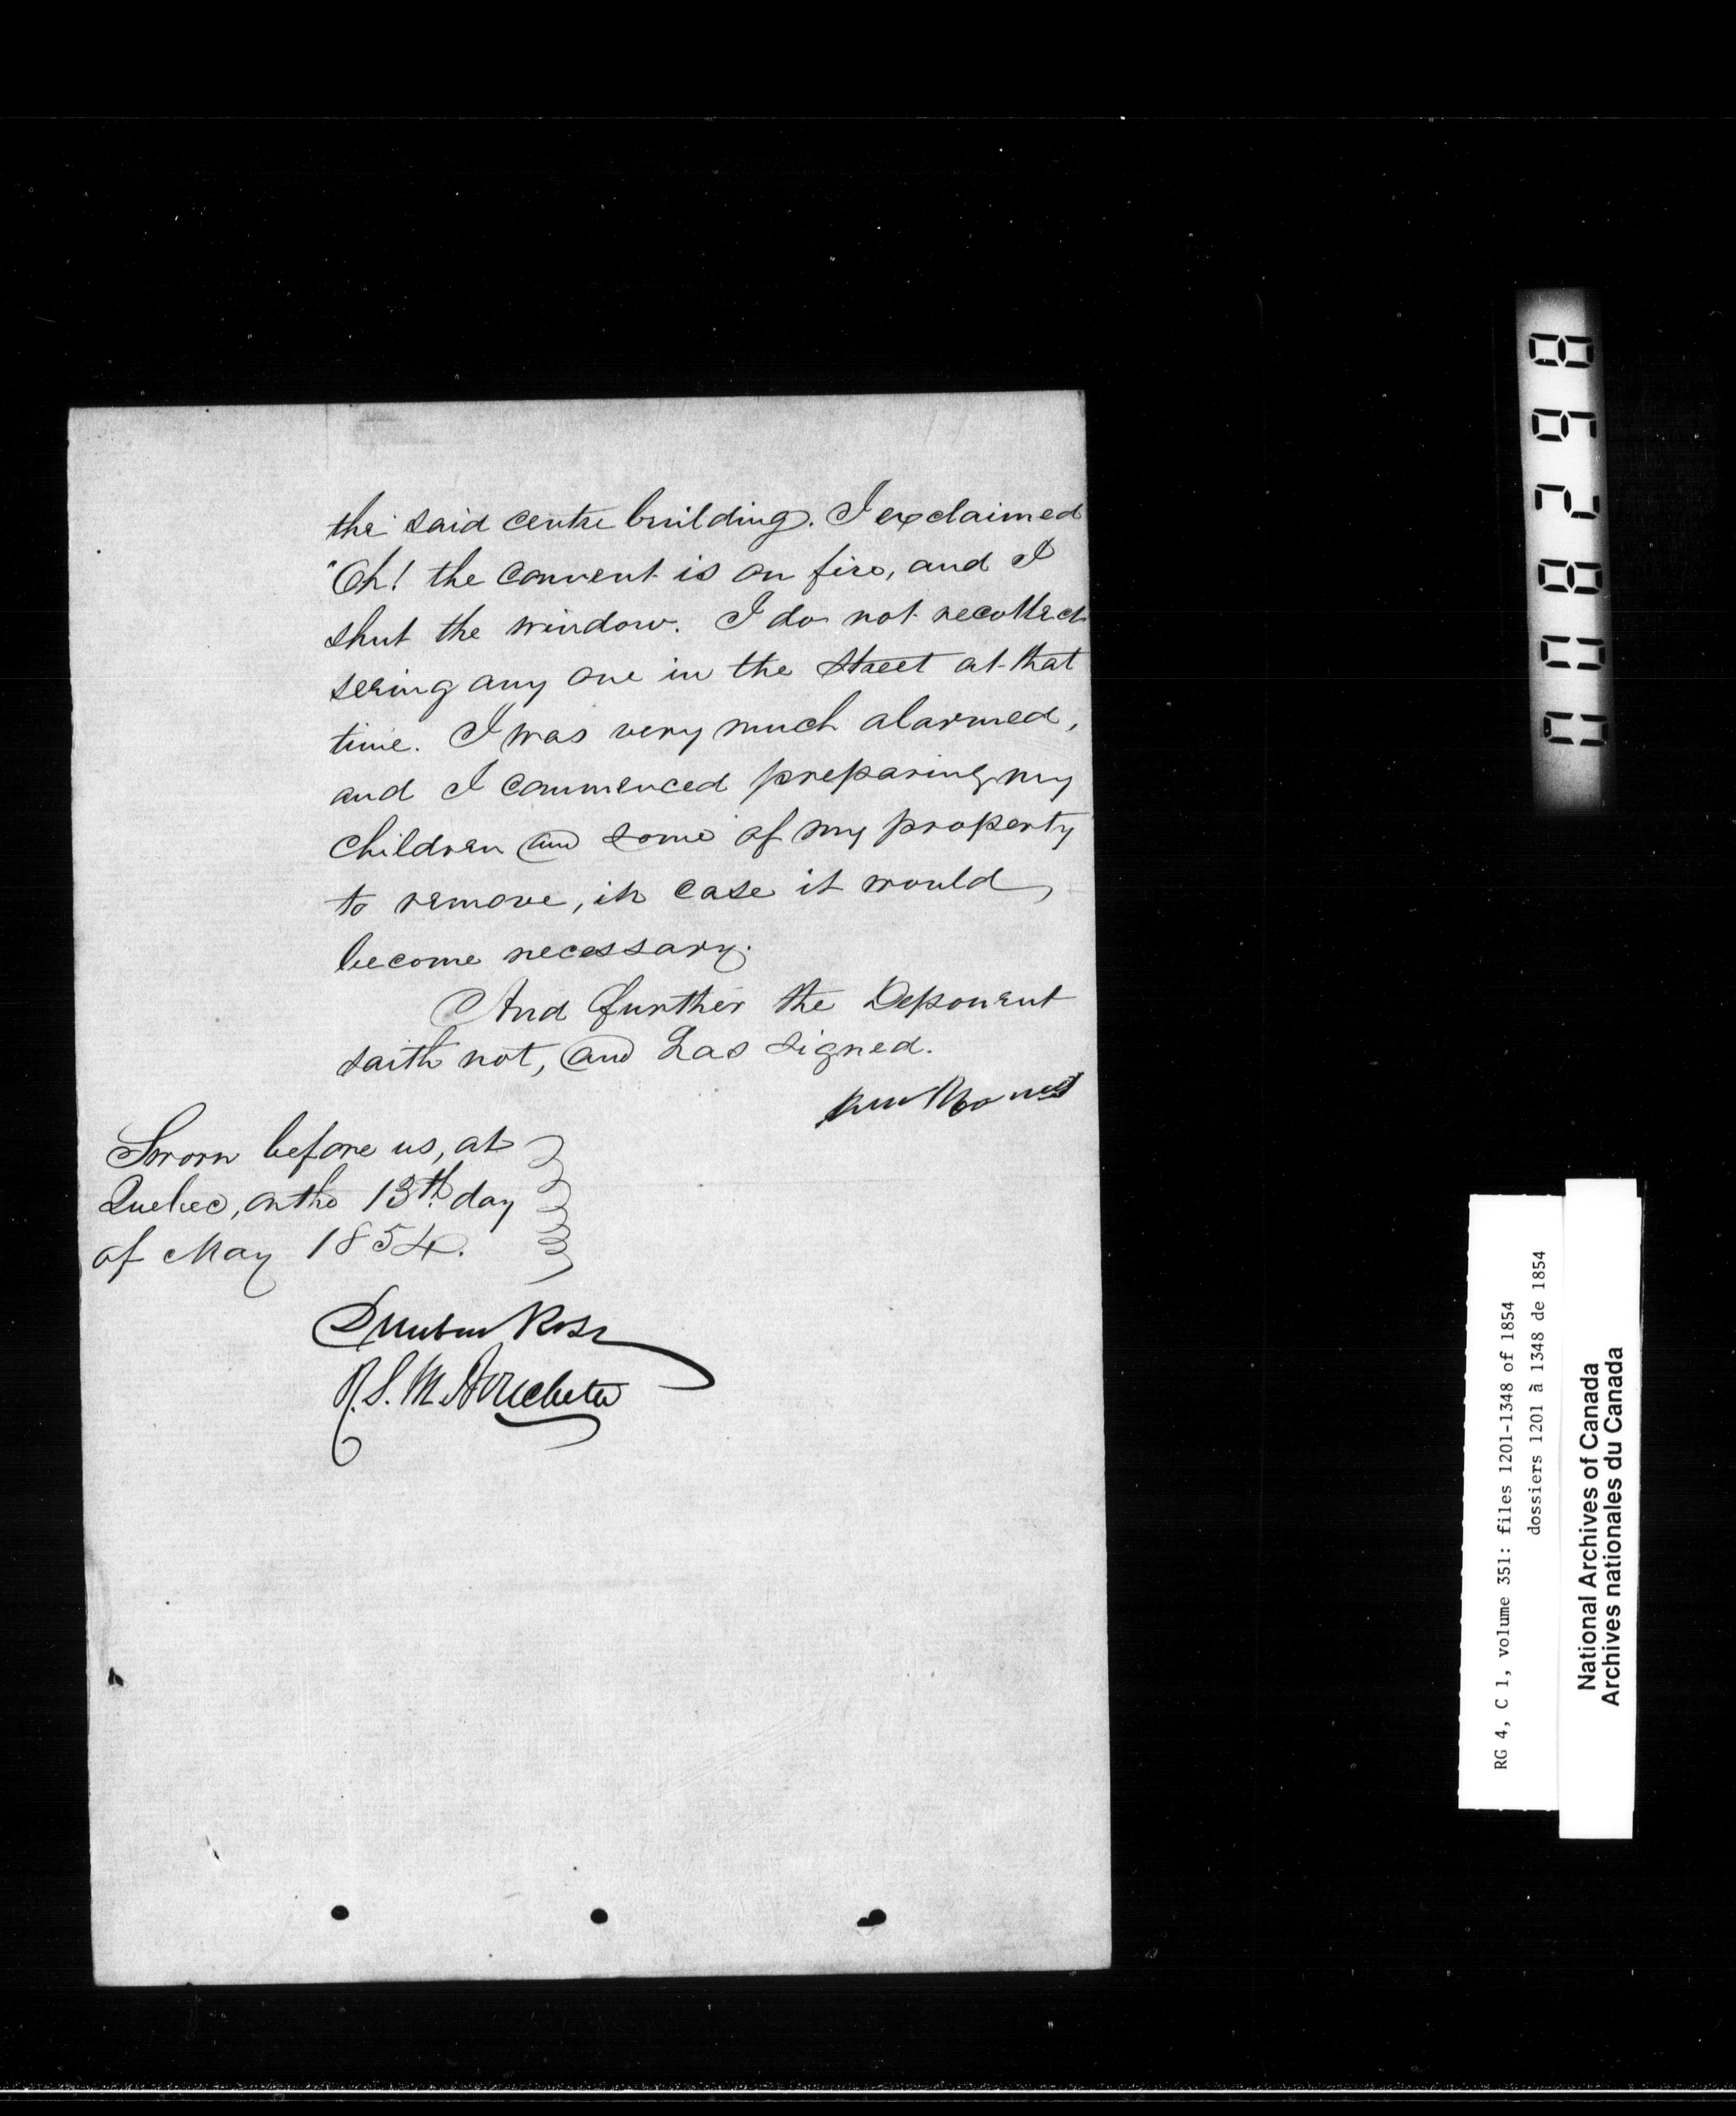 the said centre building. I exclaimed
"Oh! the convent is on fire, and I
shut the window. I do not recollect
seeing any one in the street at that
time. I was very much alarmed,
and I commenced preparing my
children and some of my property
to remove, in case it would
become necessary.
And further the Deponent
saith not, and has signed.
Sworn before us, at
Quebec, on the 13th day
of May 1854.
Dunbar Ross
R. S. M. Bouchette
008298
RG 4, C 1, volume 351: files 1201-1348 of 1854
dossiers 1201 à 1348 de 1854
National Archives of Canada
Archives nationales du Canada